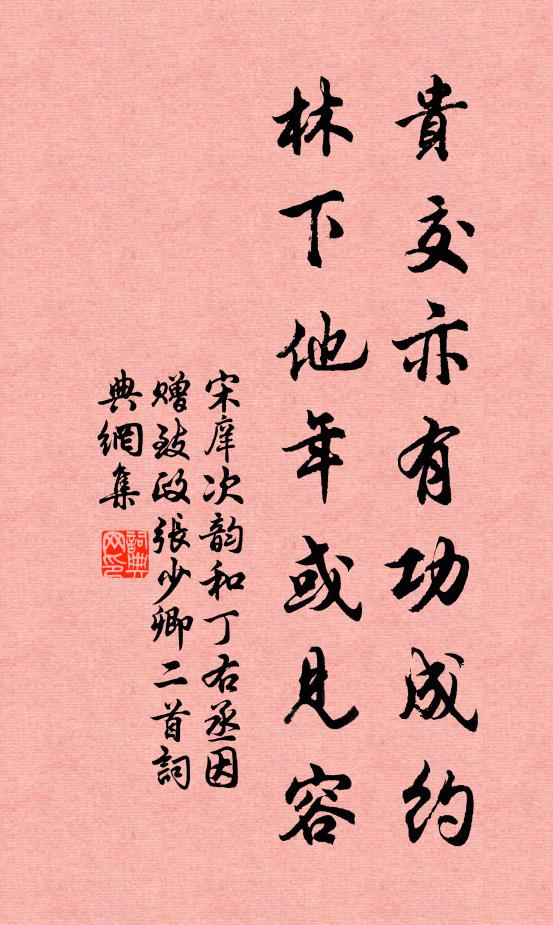 貴交亦有功成約
林下他年或見容
宋庠次韵和丁右丞因
贈致政張少卿二首詞
典網集
詞典
网印